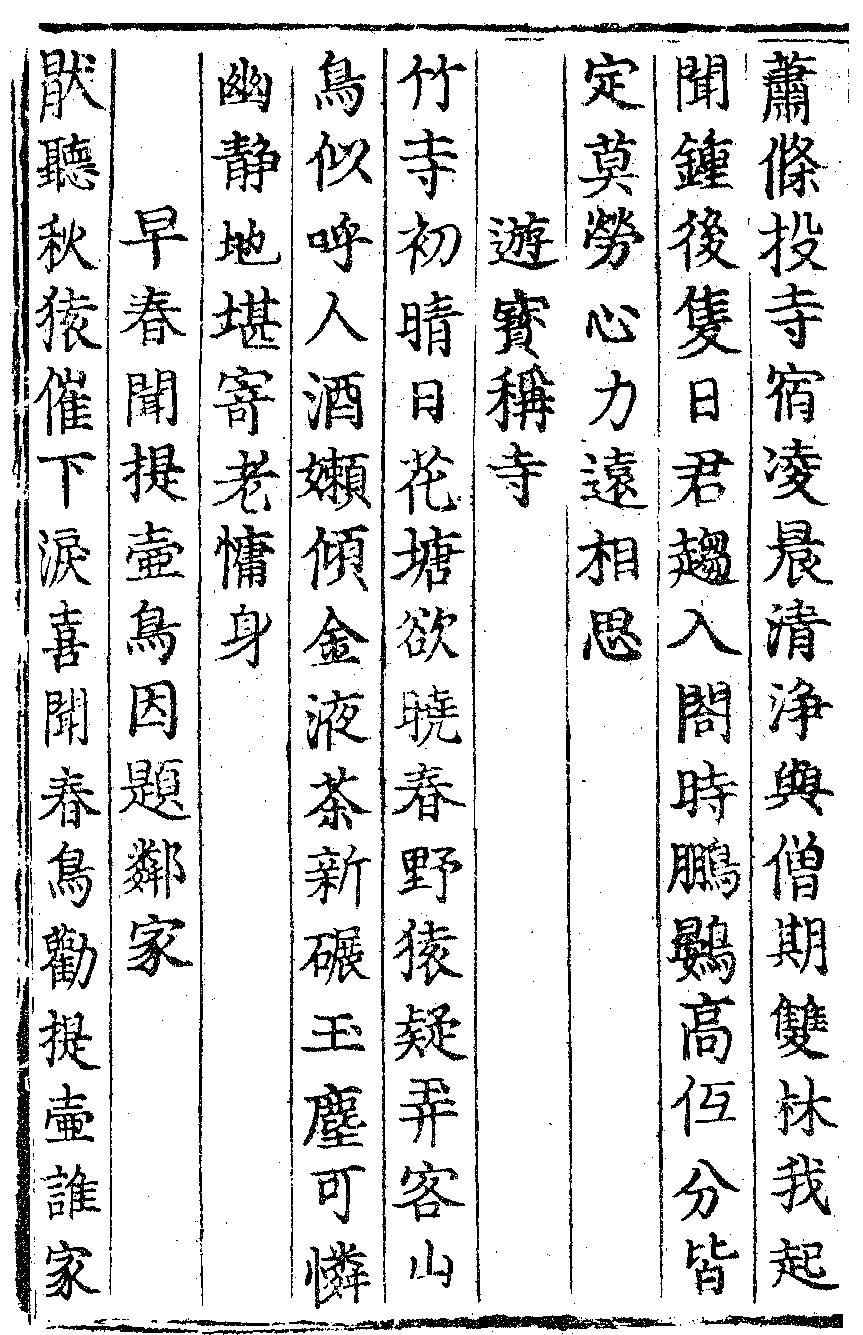 蕭條投寺宿凌晨清淨與僧期雙林我起
聞鍾後隻日君趨入閤時鵬鷃高低分皆
定莫勞心力遠相思
遊寳稱寺
竹寺初晴日花塘欲曉春野猿疑弄客山
鳥似呼人酒嬾傾金液茶新碾玉塵可憐
幽静地堪寄老慵身
早春聞提壷鳥因題鄰家
猒聽秋猿催下淚喜聞春鳥勸提壷誰家